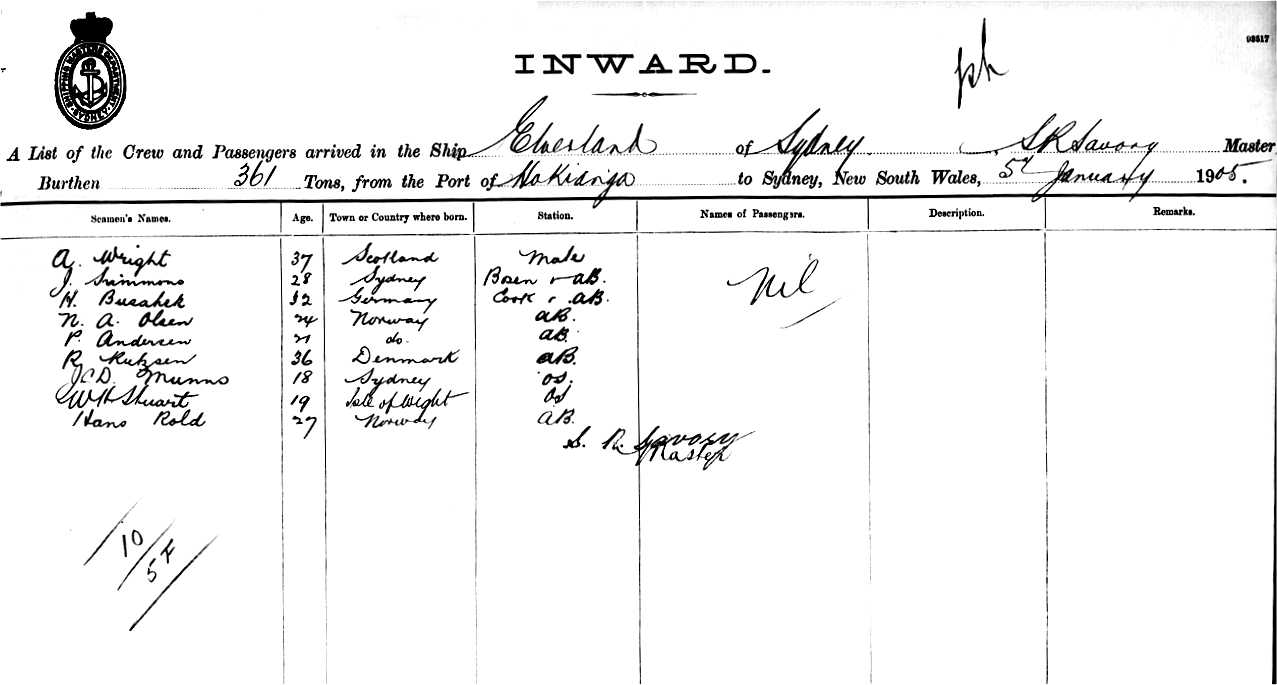 SHIPPING MASTERS DEPARTMENT
SYDNEY
98517
INWARD.
A List of the Crew and Passengers arrived in the Ship Elverland of Sydney S R Savory Master
Burthen 361 Tons, from the Port of Hokianga to Sydney, New South Wales, 5th January 1905.
Seamen's Names. Age. Town or Country where born. Station. Names of Passengers. Description. Remarks.
A. Wright 37 Scotland Mate
J. Simmons 28 Sydney Bosen & AB. Nil
H. 32 Germany Cook & AB.
N. A. Olsen 24 Norway AB.
P. Andersen 21 do. AB.
R 36 Denmark AB.
J C D. Munns 18 Sydney OS.
W H Stuart 19 Isle of Wight OS
Hans Rold 27 Norway AB.
S. R. Savory
Master
10
5 F